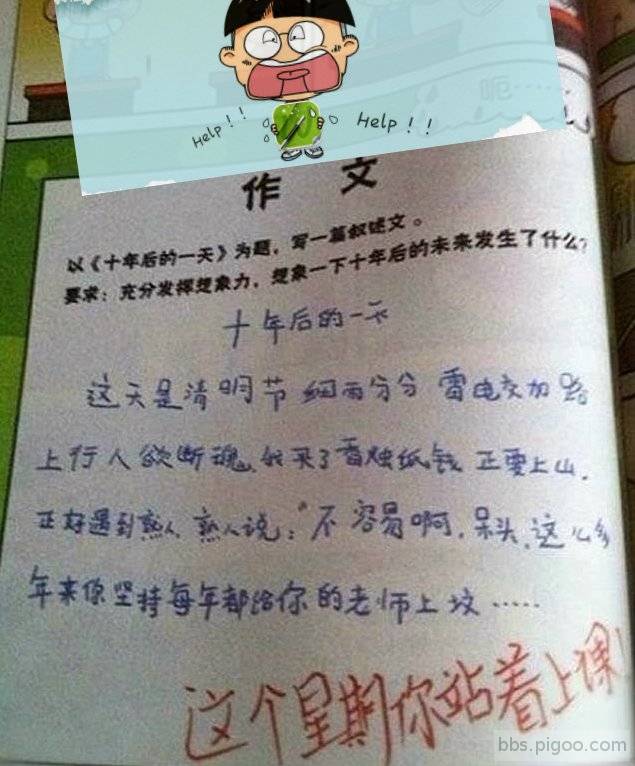 呃……
Help!! Help!!
作 文
以《十年后的一天》为题，写一篇叙述文。
要求：充分发挥想象力，想象一下十年后的未来发生了什么？
十年后的一天
这天是清明节 细雨分分 雷电交加 路
上行人欲断魂，我买了香烛纸钱 正要上山，
正好遇到熟人，熟人说：“不容易啊，呆头，这么多
年来你坚持每年都给你的老师上坟……
这个星期你站着上课！
bbs.pigoo.com